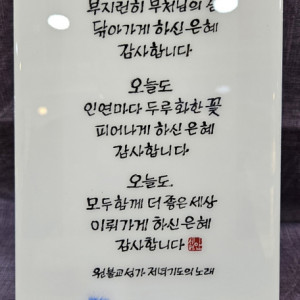 부지런히 부처님의
닮아가게 하신 은혜
감사합니다
오늘도
인연마다 두루 화한 꽃
피어나게 하신 은혜
감사합니다
오늘도.
모두함께 더 좋은 세상
이뤄가게 하신 은혜
감사합니다
원불교성가 저녁기도의 노래